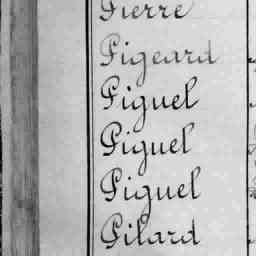 Pierre
Pigeard
Piguel
Piguel
Piguel
Pilard